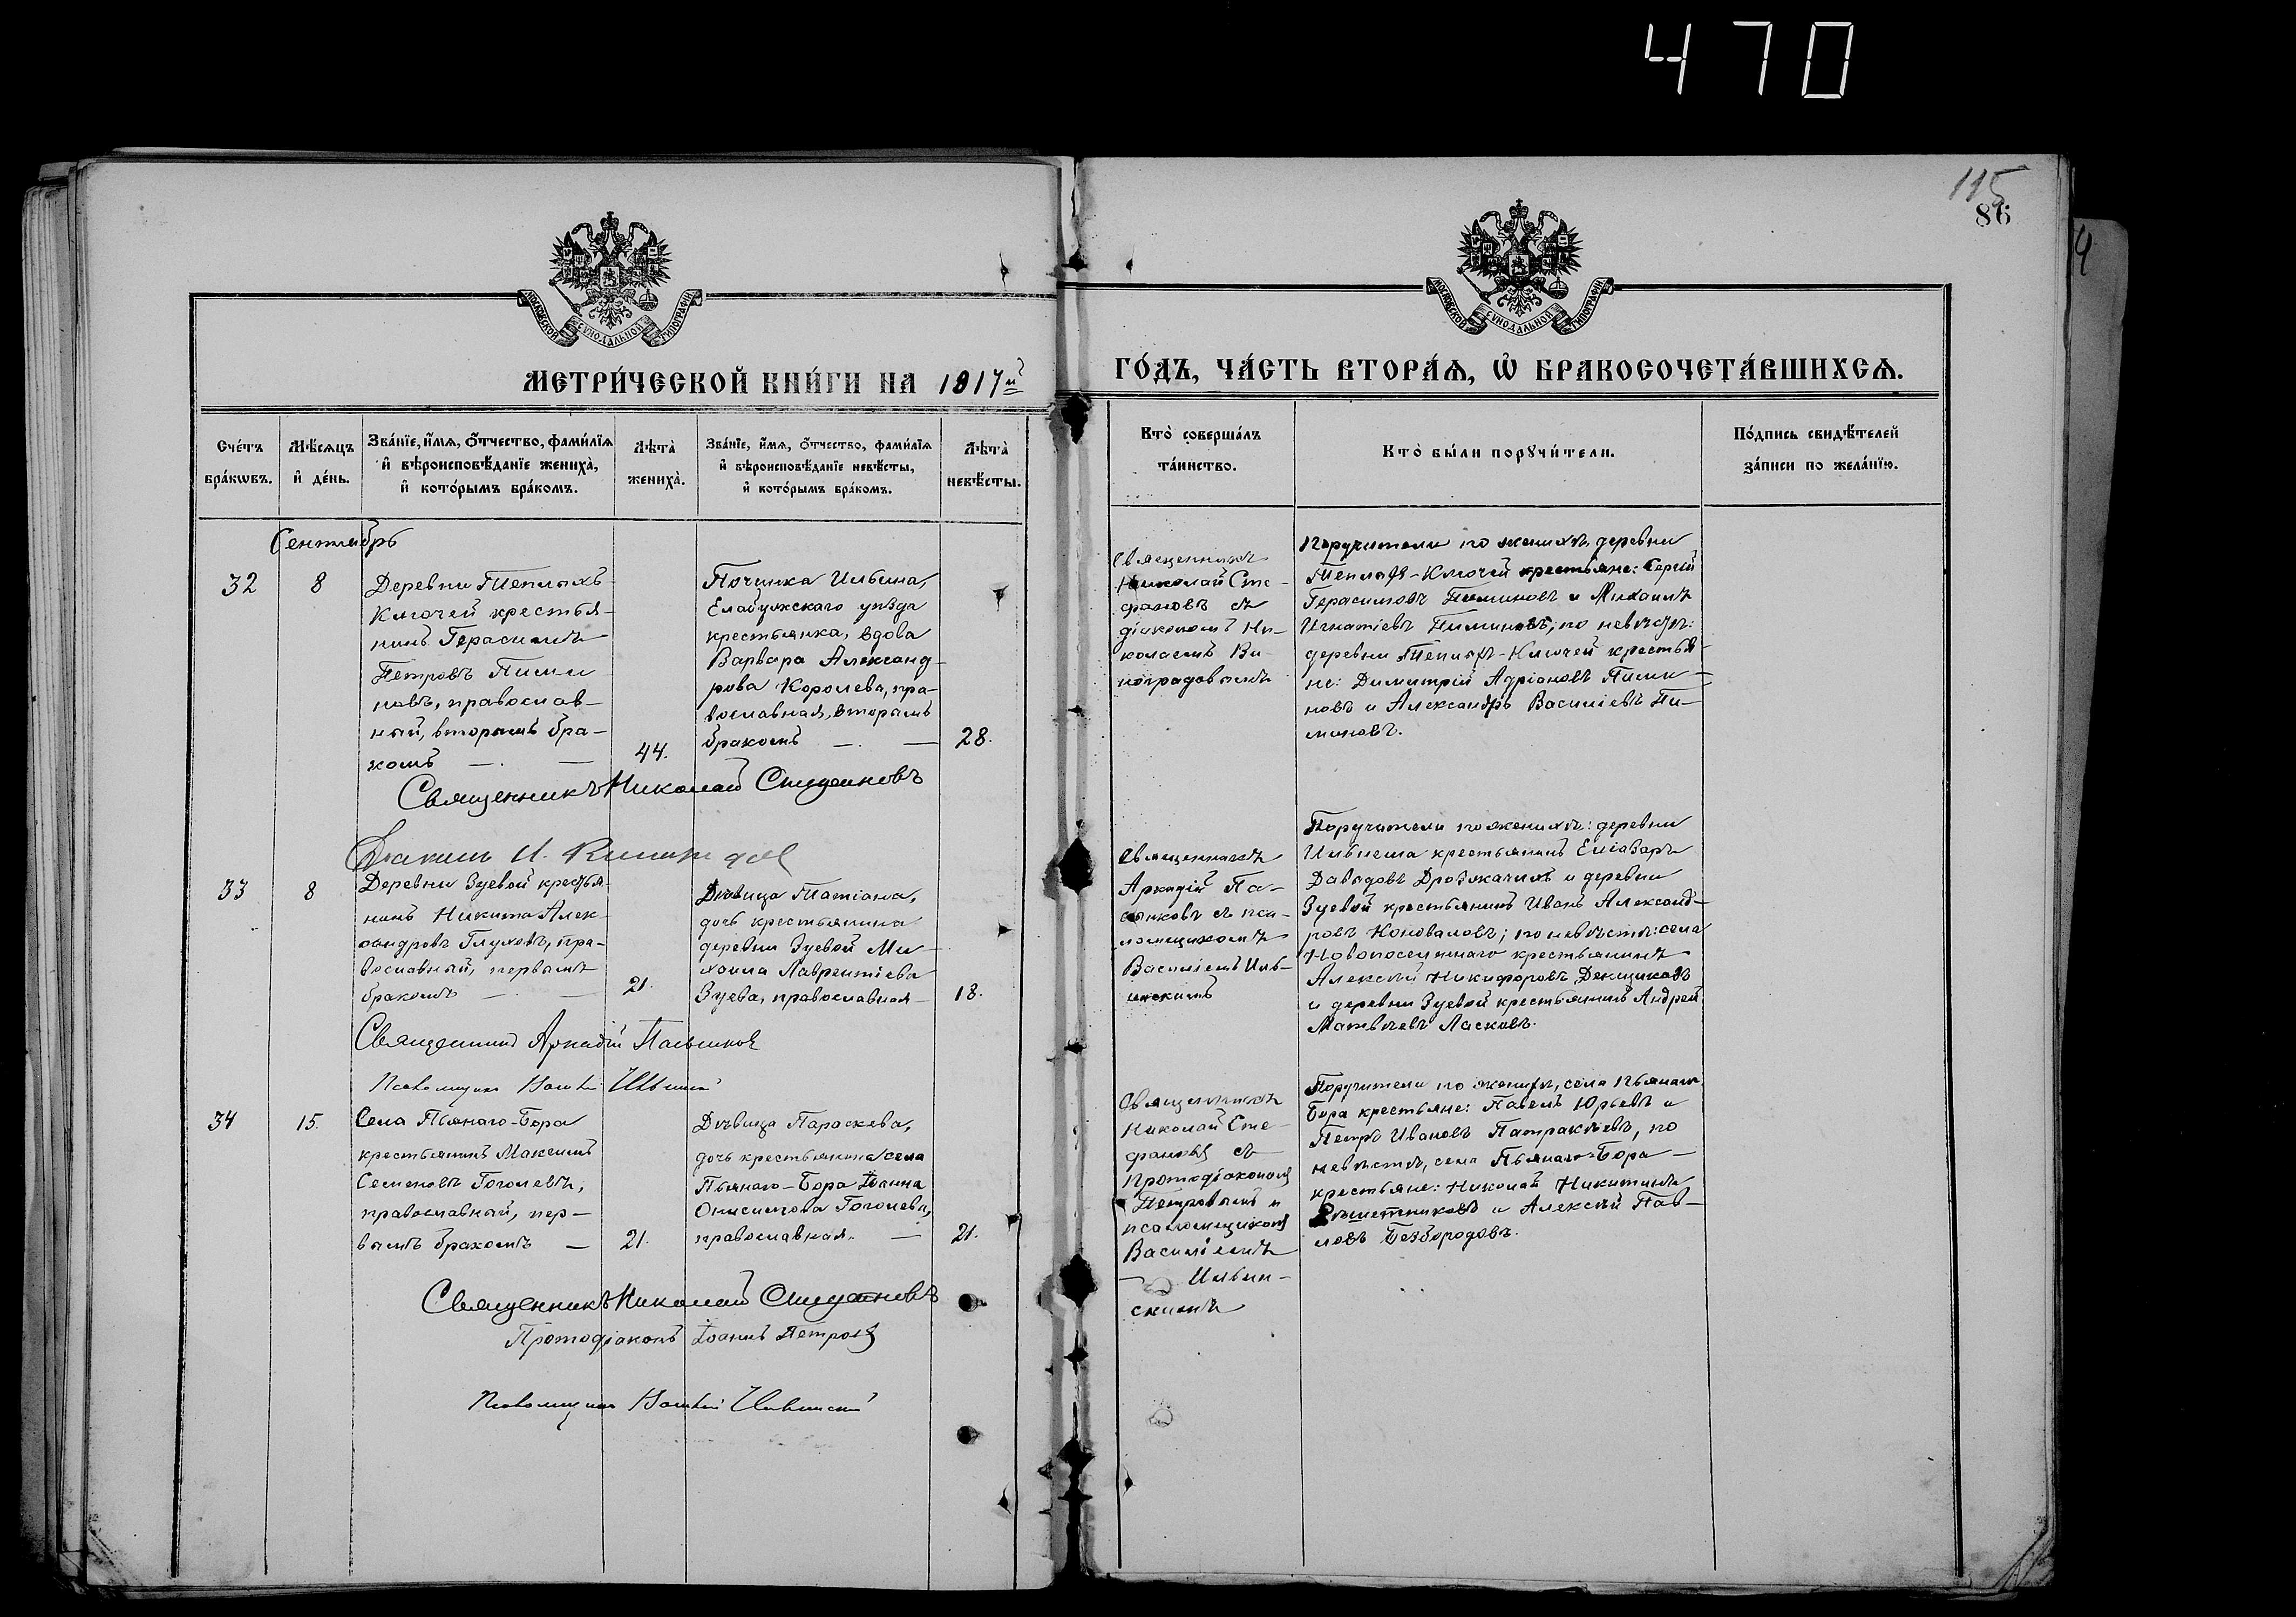 470
115
86
4
МОСКОВСКОЙ СѴНОДАЛЬНОЙ ТИПОГРАФІИ
МОСКОВСКОЙ СѴНОДАЛЬНОЙ ТИПОГРАФІИ
МЕТРИ́ЧЕСКОЙ КНИ́ГИ НА 1917й
ГО́ДЪ, ЧА́СТЬ ВТОРА́Ѧ, Ѡ҆ БРАКОСОЧЕТА́ВШИХСѦ.
Сче́тъ
бра́кѡвъ.
Мѣ́сѧцъ
и҆ де́нь.
Зва́нїе, и҆́мѧ, ѻ҆́тчество, фами́лїѧ
и҆ вѣроисповѣ́данїе жениха̀,
и҆ кото́рымъ бра́комъ.
Лѣ́та̀
жениха̀.
Зва́нїе, и҆́мѧ, ѻ҆́тчество, фами́лїѧ
и҆ вѣроисповѣ́данїе невѣ́сты,
и҆ кото́рымъ бра́комъ.
Лѣ́та̀
невѣ́сты.
Кто̀ соверша́лъ
та́инство.
Кто̀ бы́ли порꙋчи́тели.
По́дпись свидѣ́телей
за́писи по жела́нїю.
Сентябрь
32
8
Деревни Теплыхъ-
Ключей крестья-
нинъ Герасимъ
Петровъ Пими
новъ, православ-
ный, вторымъ бра-
комъ — . —
44.
Починка Ильина,
Елабужскаго уѣзда
крестьянка, вдова
Варвара Александ-
рова Королева, пра-
вославная, вторымъ
бракомъ — . —
28.
Священникъ
Николай Сте-
фановъ съ
діакономъ Ни-
колаемъ Ви-
ноградовымъ
Поручители по женихѣ, деревни
Теплыхъ-Ключей крестьяне: Сергій
Герасимовъ Пиминовъ и Михаилъ
Игнатіевъ Пиминовъ; по невѣстѣ:
деревни Теплыхъ-Ключей крестья-
не: Димитрій Адріановъ Пими-
новъ и Александръ Василіевъ Пи-
миновъ.
Священникъ Николай Стефановъ
Діаконъ Н.
33
8
Деревни Зуевой крестья-
нинъ Никита Алек-
сандровъ Глуховъ, пра-
вославный, первымъ
бракомъ — . —
21.
Дѣвица Татіана,
дочь крестьянина
деревни Зуевой Ми-
хаила Лаврентіева
Зуева, православная —
18.
Священникъ
Аркадій Па-
сынковъ съ пса-
ломщикомъ
Василіемъ Иль-
инскимъ
Поручители по женихѣ: деревни
Ильнеша крестьянинъ Еліазаръ
Давыдовъ Дрозжачихъ и деревни
Зуевой крестьянинъ Иванъ Александ-
ровъ Коноваловъ; по невѣстѣ: села
Новопоселеннаго крестьянинъ
Алексѣй Никифоровъ Декщиковъ
и деревни Зуевой крестьянинъ Андрей
Матвѣевъ Ласковъ.
Священникъ Аркадій Пасынковъ
Псаломщикъ Василій Ильинскій
34
15.
Села Пьянаго-Бора
крестьянинъ Максимъ
Семеновъ Гоголевъ,
православный, пер-
вымъ бракомъ —
21.
Дѣвица Параскева,
дочь крестьянина села
Пьянаго-Бора Іоанна
Онисимова Гоголева,
православная. —
21.
Священникъ
Николай Сте-
фановъ съ
Протодіакономъ
Петровымъ и
псаломщикомъ
Василіемъ
— Ильин-
скимъ
Поручители по женихѣ, села Пьянаго
Бора крестьяне: Павелъ Юрьевъ и
Петръ Ивановъ Патракѣевъ, по
невѣстѣ, села Пьянаго-Бора —
крестьяне: Николай Никитинъ
Рѣшетниковъ и Алексѣй Пав-
ловъ Безбородовъ.
Священникъ Николай Стефановъ
Протодіаконъ Іоаннъ Петровъ
Псаломщикъ Василій Ильинскій